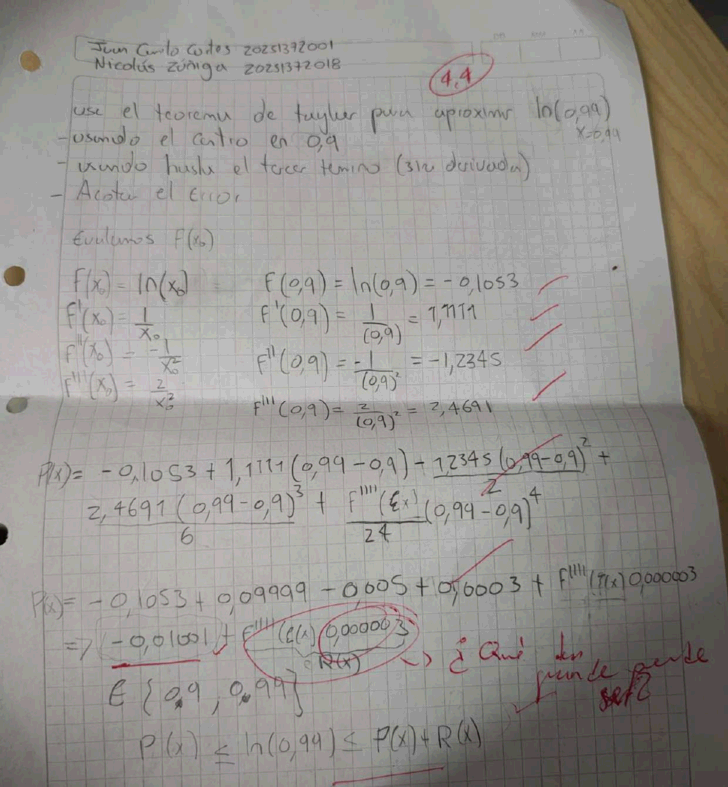 Juan Camilo Cortes 20251372001
Nicolás Zúñiga 20251372018
4,4
use el teorema de taylor para aproximar ln(0,99)
x=0,99
- usando el centro en 0,9
- usando hasta el tercer termino (3ra derivada)
- Acotar el Error
Evaluamos F(x₀)
F(x₀) = ln(x₀) F(0,9) = ln(0,9) = -0,1053
F'(x₀) = 1/x₀ F'(0,9) = 1/(0,9) = 1,1111
F''(x₀) = -1/x₀² F''(0,9) = -1/(0,9)² = -1,2345
F'''(x₀) = 2/x₀³ F'''(0,9) = 2/(0,9)² = 2,4691
P(x) = -0,1053 + 1,1111(0,99-0,9) - 1,2345(0,99-0,9)²/2 +
2,4691(0,99-0,9)³/6 + F''''(ξx)/24 (0,99-0,9)⁴
P(x) = -0,1053 + 0,09999 - 0,005 + 0,0003 + F''''(ξ(x)) 0,000003
=> -0,01001 + F''''(ξ(x)) 0,000003
R(x)
¿Qué tan grande puede ser?
∈ {0,9 , 0,99}
P(x) ≤ ln(0,99) ≤ P(x) + R(x)